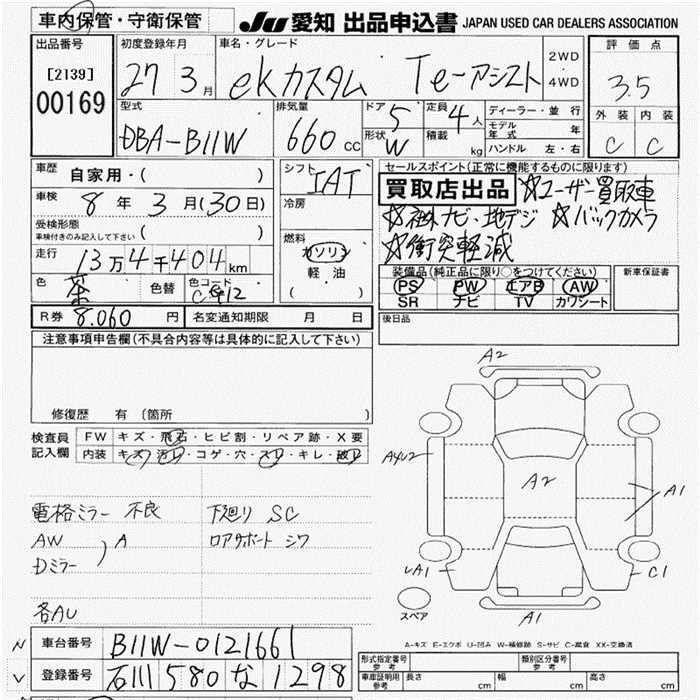 車内保管・守衛保管
JU 愛知 出品申込書 JAPAN USED CAR DEALERS ASSOCIATION
出品番号
[2139]
00169
初度登録年月
27 3月
車名・グレード
ekカスタム Te-アシスト
2WD
4WD
評価点
3.5
外装 内装
C C
型式
DBA-B11W
排気量
660cc
ドア
5
定員
4人
形状
W
積載
kg
ディーラー・並行
モデル年式 年
ハンドル 左・右
車歴
自家用・( )
車検
8年 3月(30日)
受検形態
車検付きのみ記入して下さい
( )
走行
13万4千404km
色
茶
色替
色コード
C 12
シフト
IAT
冷房
燃料
ガソリン
軽油
( )
セールスポイント(正常に機能するものに限ります)
買取店出品 ☆ユーザー買取車
☆社外ナビ・地デジ ☆バックカメラ
☆衝突軽減
装備品(純正品に限り○をつけてください)
PS PW エアB AW
SR ナビ TV カワシート
新車保証書
R券 8.060円
名変通知期限 月 日
後日品
注意事項申告欄(不具合内容等は具体的に記入して下さい)
修復歴 有 (箇所 )
検査員記入欄
FW キズ・飛石・ヒビ割・リペア跡・X要
内装 キズ・汚レ・コゲ・穴・スレ・キレ・破レ
電格ミラー 不良
AW
Dミラー
A
各AU
下廻り SC
ロアサポート シワ
A2
A4U2
A2
A1
A1
C1
A1
スペア
A-キズ E-エクボ U-凹み W-補修跡 S-サビ C-腐食 XX-交換済
N 車台番号 B11W-0121661
V 登録番号 石川 580 な 1298
形式指定番号
参考
類別区分番号
参考
車庫証明用
参考
長さ cm
幅 cm
高さ cm